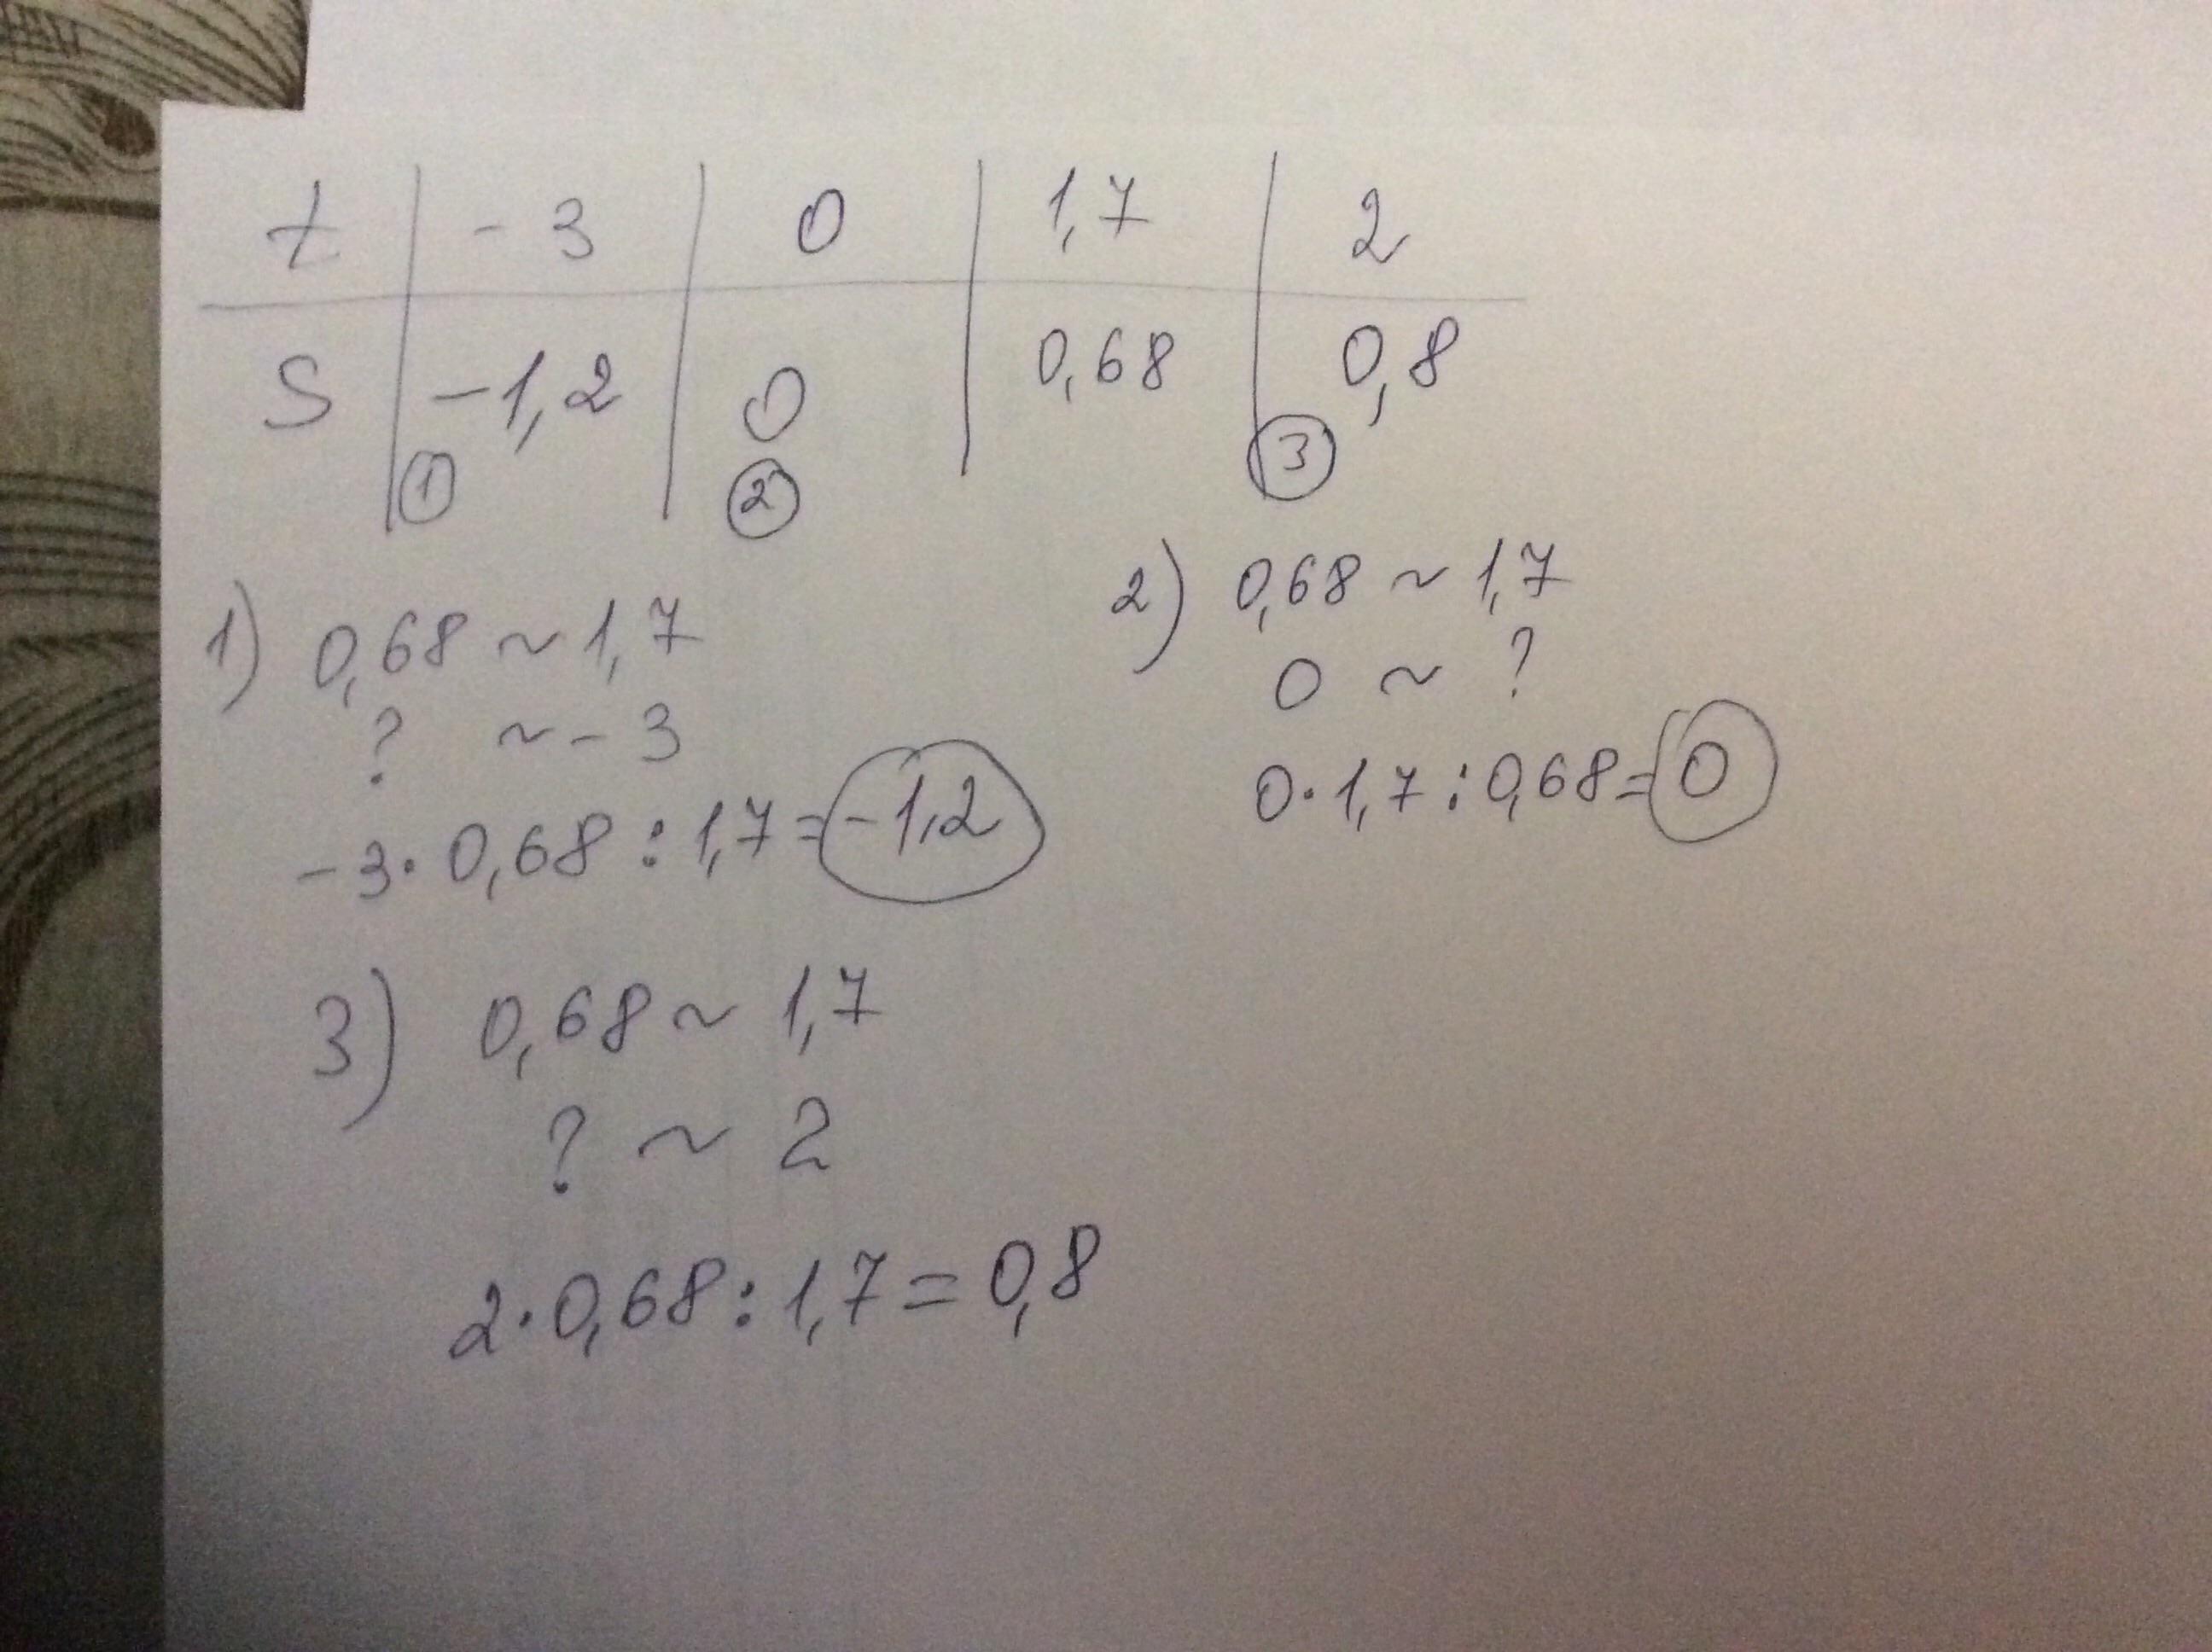 t -3 0 1,7 2
S -1,2 0 0,68 0,8
1 2 3
1) 0,68 ~ 1,7
? ~ -3
-3·0,68:1,7=-1,2
2) 0,68 ~ 1,7
0 ~ ?
0·1,7:0,68=0
3) 0,68 ~ 1,7
? ~ 2
2·0,68:1,7=0,8